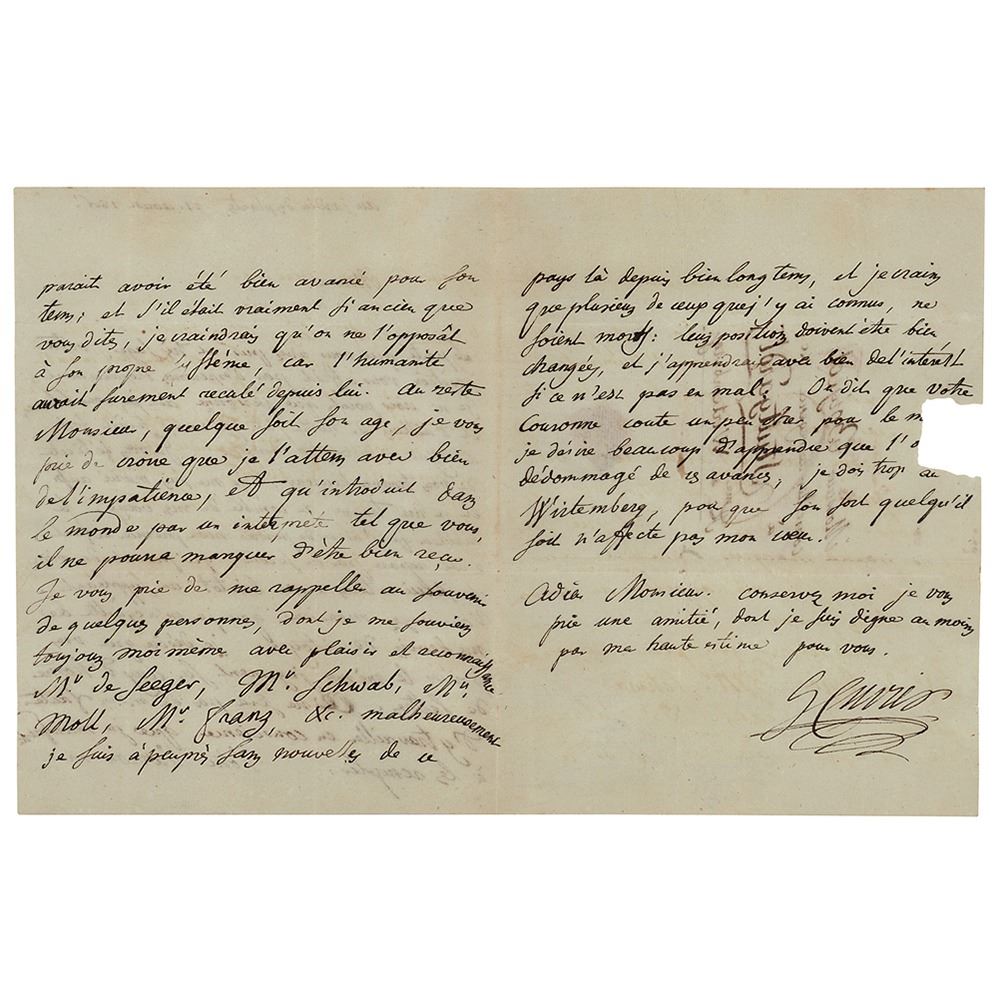 parait avoir été bien avancé pour son
tems; et s'il était vraiment si ancien que
vous dites, je craindrais qu'on ne l'opposât
à son propre systéme, car l'humanité
aurait surement reculé depuis lui. au reste
Monsieur, quelque soit son age, je vous
prie de croire que je l'attens avec bien
de l'impatience, et qu'introduit dans
le monde par un interprète tel que vous,
il ne pourra manquer d'être bien reçu.
Je vous prie de me rappeller au souvenir
de quelques personnes, dont je me souviens
toujours moi même avec plaisir et reconnaissance
Mr. de Seeger, Mr. Schwab, Mrs.
Moll, Mr. franz &c. malheureusement
je suis à peuprès sans nouvelles de ce
pays là depuis bien long tems, et je crains
que plusieurs de ceux que j'y ai connus, ne
soient morts: leurs position doivent être bien
changées, et j'apprendrais avec bien de l'intérêt
si ce n'est pas en mal. On dit que votre
Couronne coute un peu cher pour le m
je désire beaucoup d'apprendre que l'o
dédommagé de ces avances, je dois trop au
Wirtemberg, pour que son sort quelqu'il
soit n'affecte pas mon cœur.
Adieu Monsieur. conservez moi je vous
prie une amitié, dont je suis digne au moins
par ma haute estime pour vous.
G Cuvier